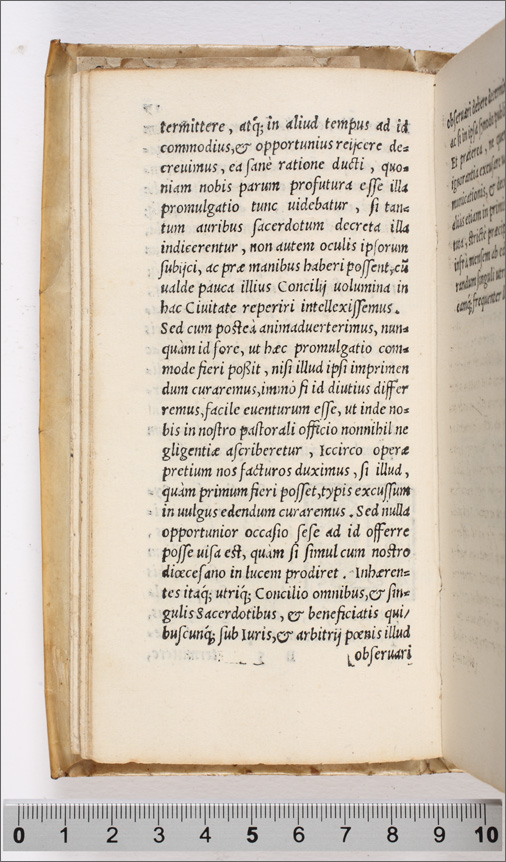 termittere, atq́; in aliud tempus ad id
commodius,& opportunius reijcere de-
creuimus, ea sanè ratione ducti, quo-
niam nobis parum profutura esse illa
promulgatio tunc uidebatur, si tan-
tum auribus sacerdotum decreta illa
indicerentur, non autem oculis ipsorum
subijci, ac præ manibus haberi possent,cū
ualde pauca illius Concilij uolumina in
hac Ciuitate reperiri intellexissemus.
Sed cum posteà animaduerterimus, nun-
quàm id fore, ut hæc promulgatio com-
mode fieri poßit, nisi illud ipsi imprimen
dum curaremus,immò si id diutius differ
remus, facile euenturum esse, ut inde no-
bis in nostro pastorali officio nonnihil ne
gligentiæ ascriberetur, Iccirco operæ
pretium nos facturos duximus, si illud,
quàm primum fieri posset,typis excussum
in uulgus edendum curaremus. Sed nulla
opportunior occasio sese ad id offerre
posse uisa est, quàm si simul cum nostro
diœcesano in lucem prodiret. Inhæren-
tes itaq́; utriq́; Concilio omnibus,& sin-
gulis Sacerdotibus, & beneficiatis qui/
buscunq́; sub Iuris,& arbitrij pœnis illud
obseruari
obseruari debere
ac si in ipsa synodo
Et præterea, ne
ignorantia excusare
municationis, &
alias etiam in primis
infra mensem ab
randam singuli
eamq́; frequenter
0 1 2 3 4 5 6 7 8 9 10